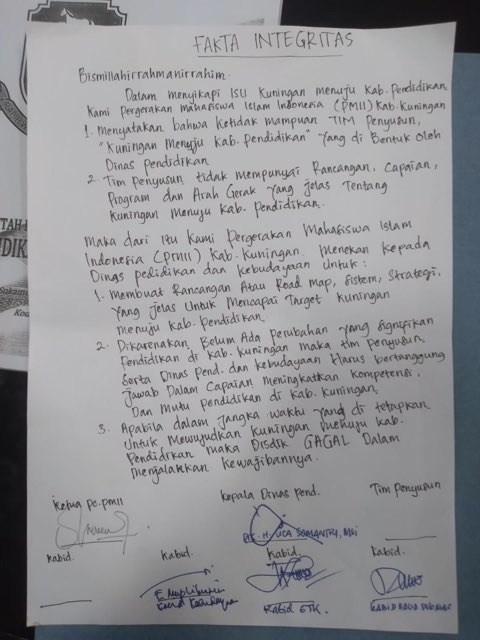 FAKTA INTEGRITAS
Bismillahirrahmanirrahim.
Dalam menyikapi ISU Kuningan menuju Kab. Pendidikan
Kami Pergerakan Mahasiswa Islam Indonesia (PMII) Kab. Kuningan
1. Menyatakan bahwa ketidak mampuan TIM Penyusun,
"Kuningan Menuju Kab. Pendidikan" yang di Bentuk oleh
Dinas pendidikan
2. Tim Penyusun tidak mempunyai Rancangan, Capaian,
Program dan Arah Gerak yang jelas Tentang
Kuningan Menuju Kab. Pendidikan.
Maka dari Itu Kami Pergerakan Mahasiswa Islam
Indonesia (PMII) Kab. Kuningan. Menekan kepada
Dinas pedidikan dan Kebudayaan Untuk :
1. Membuat Rancangan Atau Road Map, Sistem, Strategi,
yang jelas Untuk Mencapai Target Kuningan
menuju Kab. Pendidikan.
2. Dikarenakan Belum Ada perubahan yang signifikan
Pendidikan di Kab. Kuningan maka tim Penyusun
Serta Dinas Pend. dan kebudayaan Harus bertanggung
jawab Dalam Capaian Meningkatkan Kompetensi,
Dan Mutu pendidikan di Kab. Kuningan.
3. Apabila dalam jangka waktu yang di tetapkan
Untuk Mewujudkan Kuningan menuju Kab.
Pendidikan maka Disdik GAGAL Dalam
menjalankan Kewajibannya.
Ketua pc. pmii
Kepala Dinas Pend.
Tim Penyusun
H. UCA SOMANTRI, MSi
Kabid.
Kabid.
Kabid.
Kabid.
Kabid GTK.